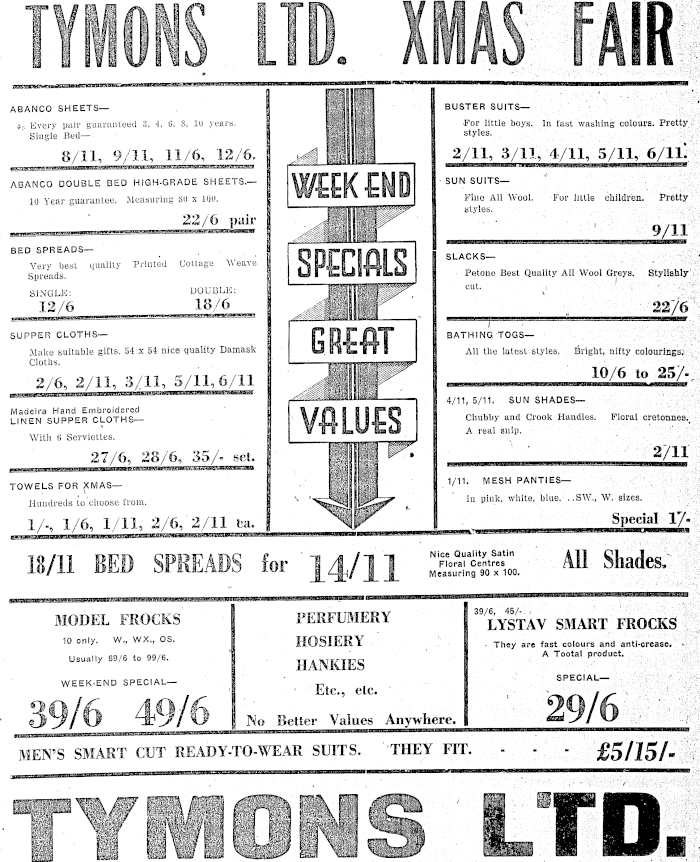 TYMONS LTD. XMAS FAIR
ABANCO SHEETS—
Every pair guaranteed 3, 4, 6, 8, 10 years.
Single Bed—
8/11, 9/11, 11/6, 12/6.
ABANCO DOUBLE BED HIGH-GRADE SHEETS.—
10 Year guarantee. Measuring 80 x 100.
22/6 pair
BED SPREADS—
Very best quality Printed Cottage Weave
Spreads.
SINGLE: DOUBLE:
12/6 18/6
SUPPER CLOTHS—
Make suitable gifts. 54 x 54 nice quality Damask
Cloths.
2/6, 2/11, 3/11, 5/11, 6/11
Madeira Hand Embroidered
LINEN SUPPER CLOTHS—
With 6 Serviettes.
27/6, 28/6, 35/- set.
TOWELS FOR XMAS—
Hundreds to choose from.
1/-, 1/6, 1/11, 2/6, 2/11 ea.
WEEK END
SPECIALS
GREAT
VALUES
BUSTER SUITS—
For little boys. In fast washing colours. Pretty
styles.
2/11, 3/11, 4/11, 5/11, 6/11.
SUN SUITS—
Fine All Wool. For little children. Pretty
styles.
9/11
SLACKS—
Petone Best Quality All Wool Greys. Stylishly
cut.
22/6
BATHING TOGS—
All the latest styles. Bright, nifty colourings.
10/6 to 25/-
4/11, 5/11. SUN SHADES—
Chubby and Crook Handles. Floral cretonnes.
A real snip.
2/11
1/11. MESH PANTIES—
In pink, white, blue. ..SW., W. sizes.
Special 1/-
18/11 BED SPREADS for 14/11
Nice Quality Satin
Floral Centres
Measuring 90 x 100.
All Shades.
MODEL FROCKS
10 only. W., WX., OS.
Usually 69/6 to 99/6.
WEEK-END SPECIAL—
39/6 49/6
PERFUMERY
HOSIERY
HANKIES
Etc., etc.
No Better Values Anywhere.
39/6, 45/-.
LYSTAV SMART FROCKS
They are fast colours and anti-crease.
A Tootal product.
SPECIAL—
29/6
MEN'S SMART CUT READY-TO-WEAR SUITS. THEY FIT. - - - £5/15/-
TYMONS LTD.